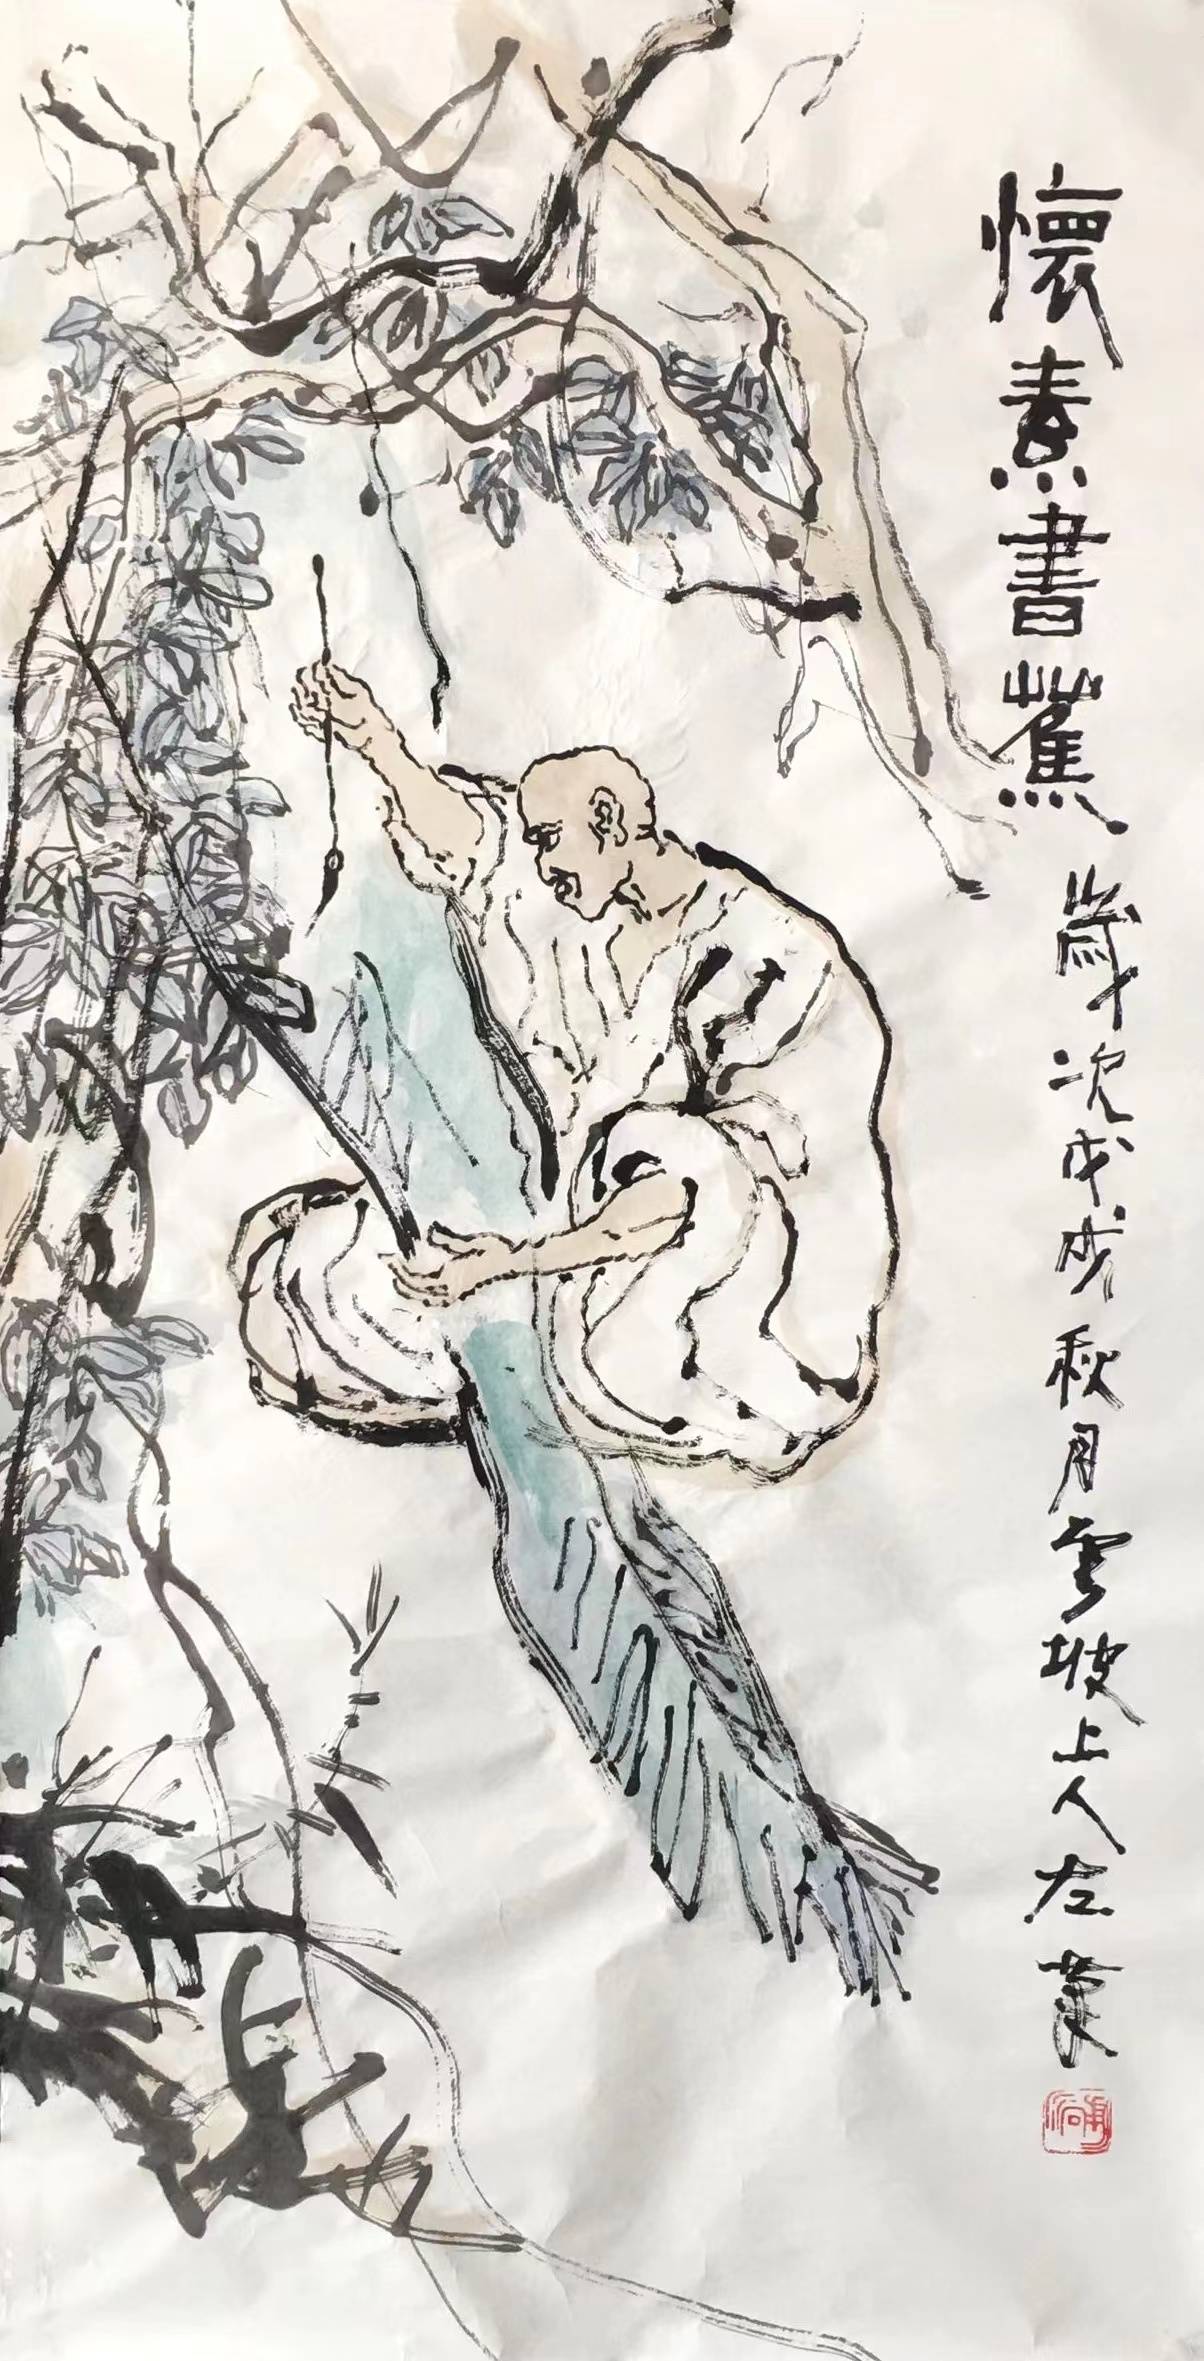 懷素書蕉
歲次戊戌秋月雲坡上人左業